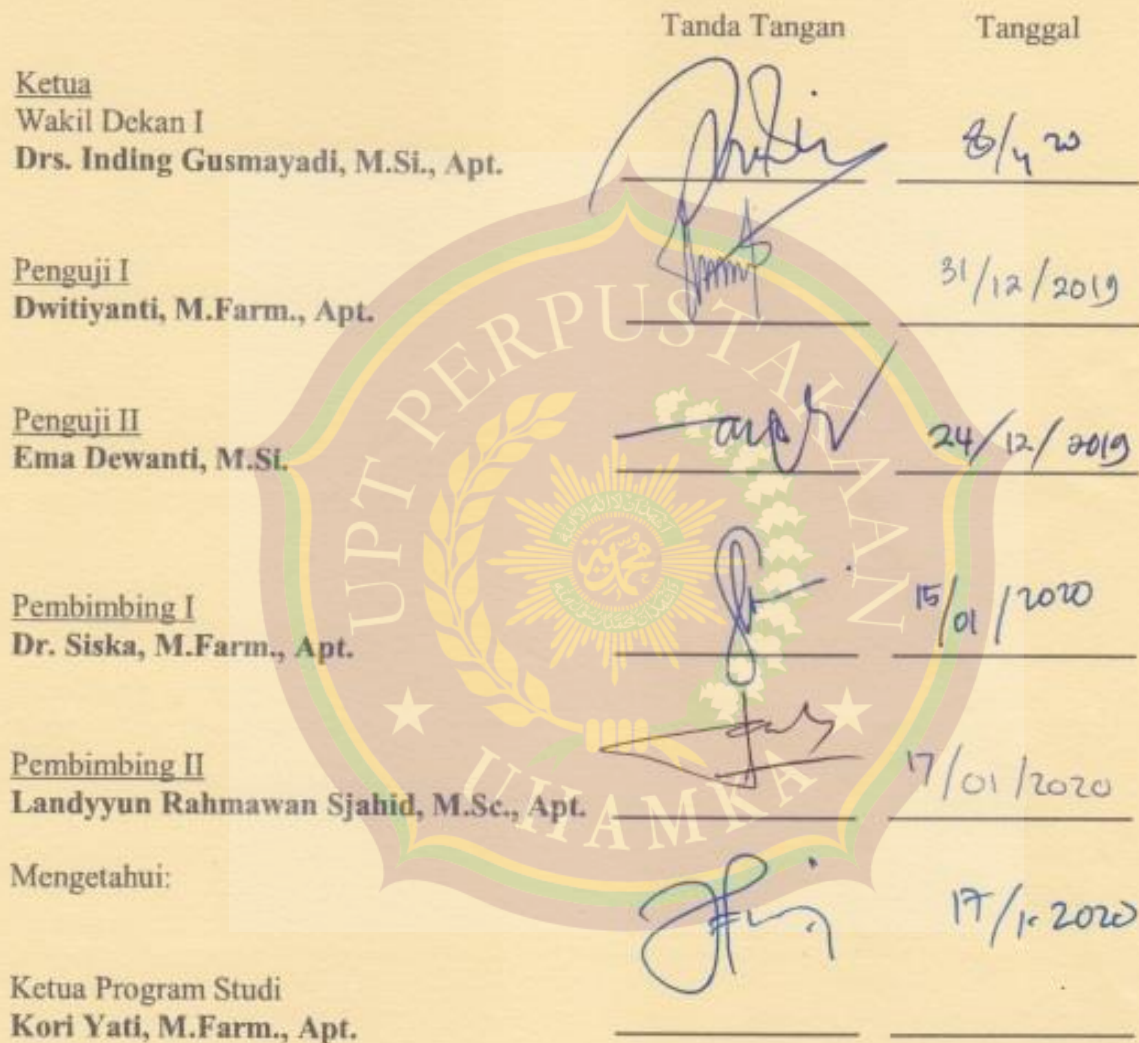 Tanda Tangan Tanggal
Ketua
Wakil Dekan I
Drs. Inding Gusmayadi, M.Si., Apt.
Penguji I
Dwitiyanti, M.Farm., Apt. 31/12/2019
Penguji II
Ema Dewanti, M.Si. 24/12/2019
Pembimbing I
Dr. Siska, M.Farm., Apt. 15/01/2020
Pembimbing II
Landyyun Rahmawan Sjahid, M.Sc., Apt. 17/01/2020
Mengetahui:
Ketua Program Studi
Kori Yati, M.Farm., Apt.
UPT PERPUSTAKAAN
UHAMKA